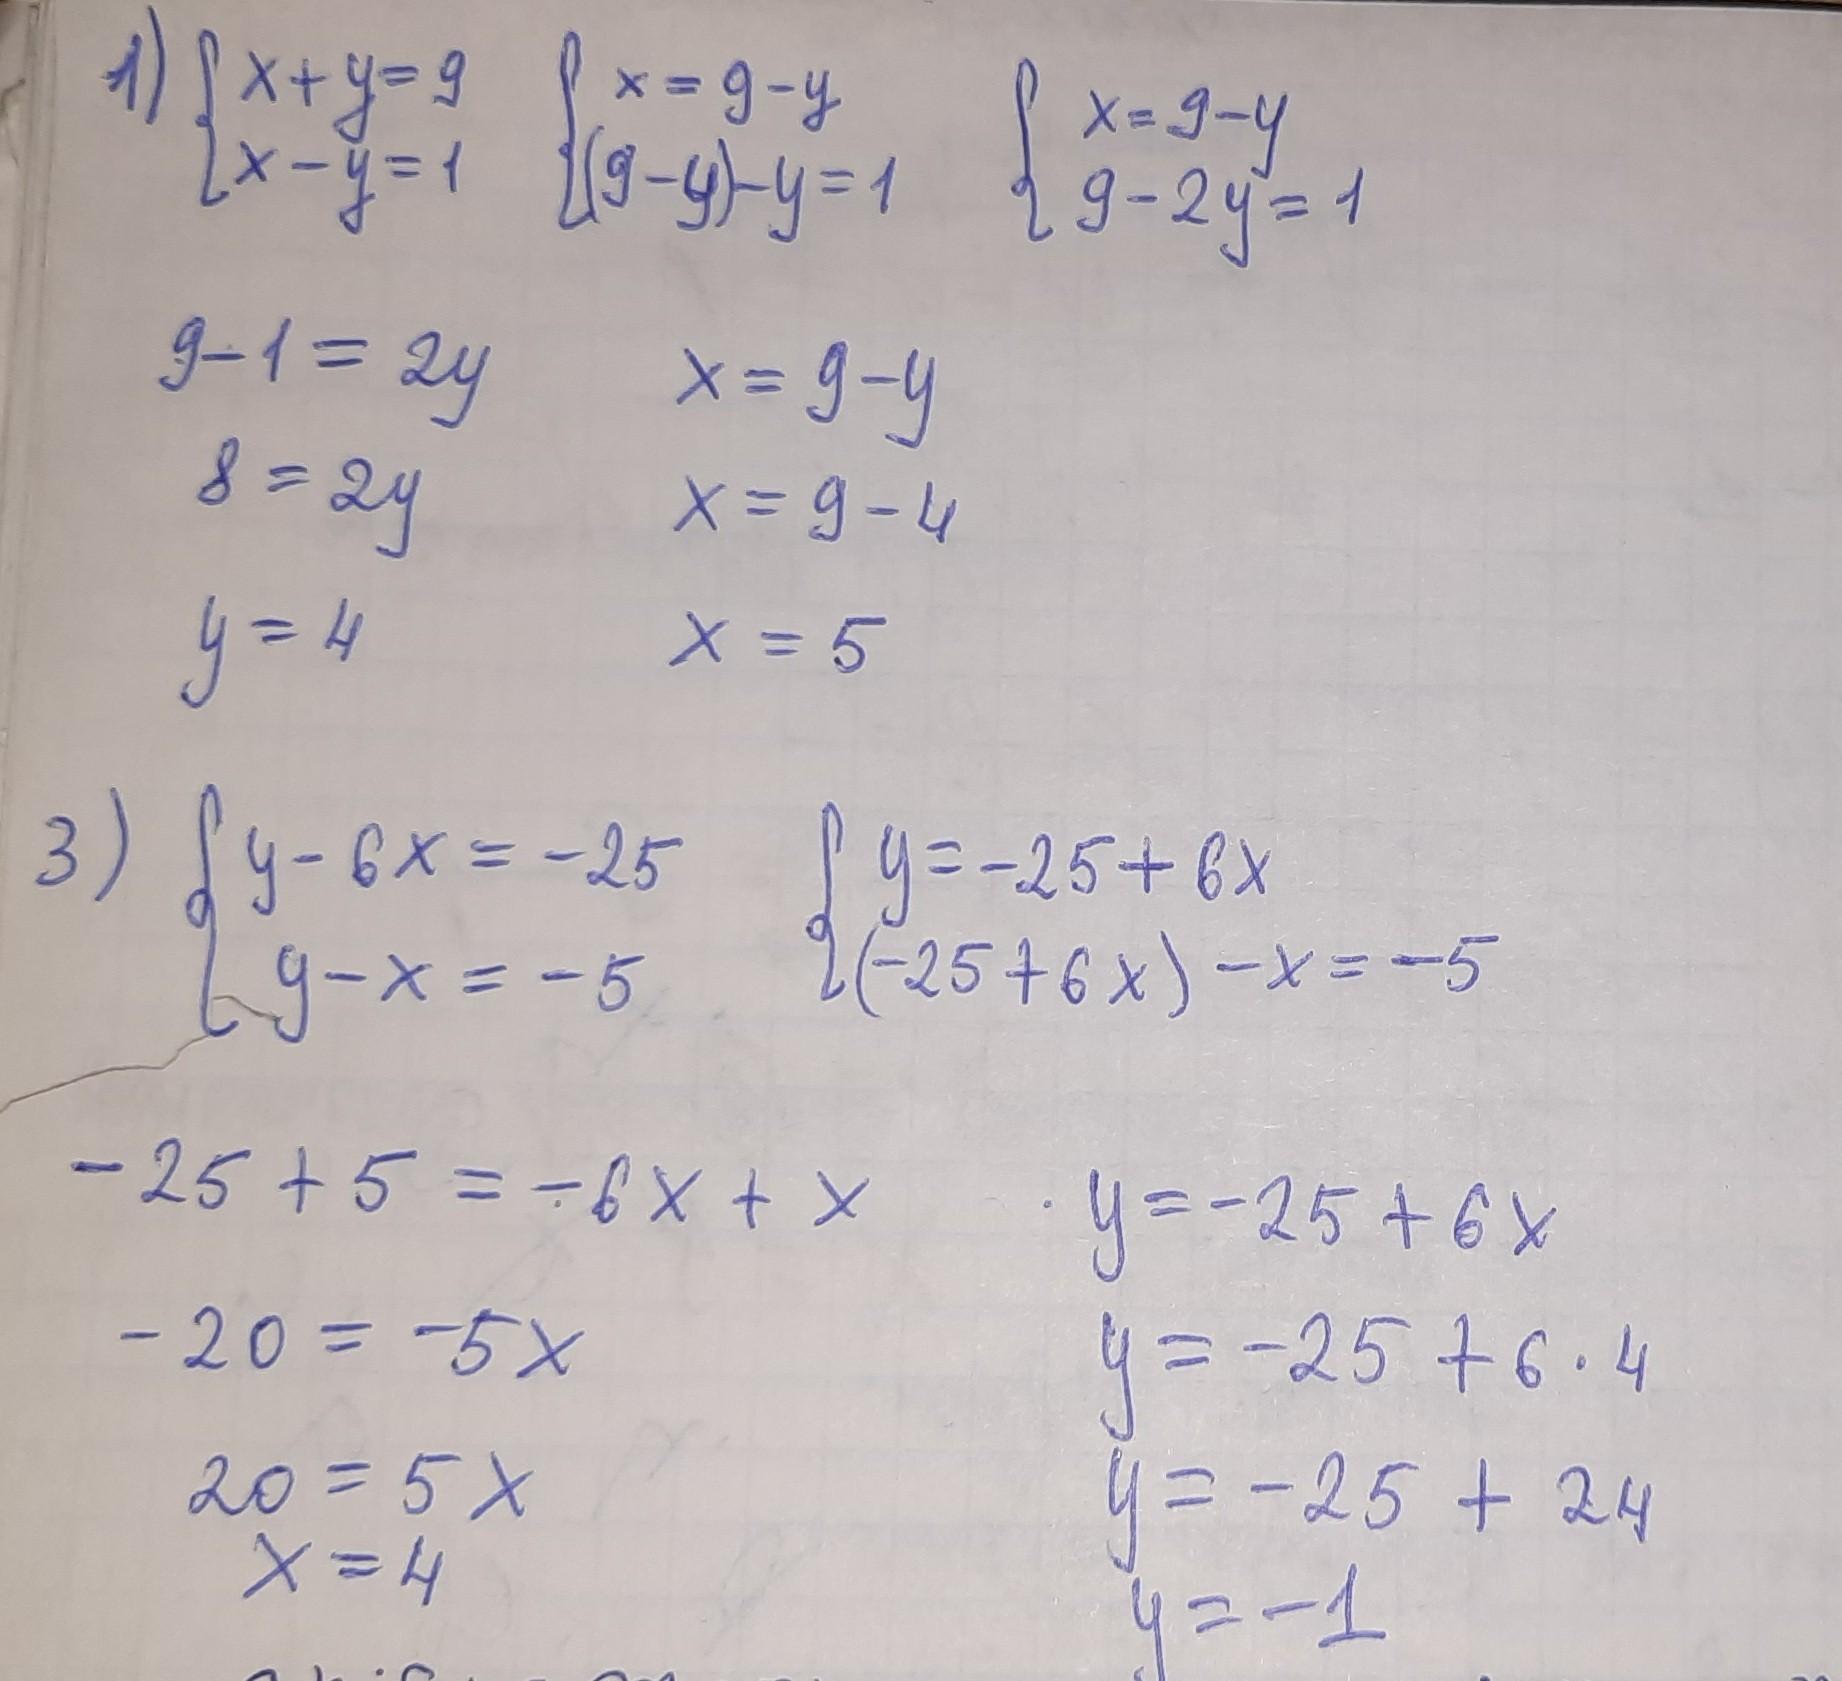 1) { x + y = 9    { x = 9 - y    { x = 9 - y
x - y = 1    (9 - y) - y = 1    9 - 2y = 1
9 - 1 = 2y    x = 9 - y
8 = 2y    x = 9 - 4
y = 4    x = 5
3) { y - 6x = -25    { y = -25 + 6x
y - x = -5    (-25 + 6x) - x = -5
-25 + 5 = -6x + x    y = -25 + 6x
-20 = -5x    y = -25 + 6 · 4
20 = 5x    y = -25 + 24
x = 4    y = -1